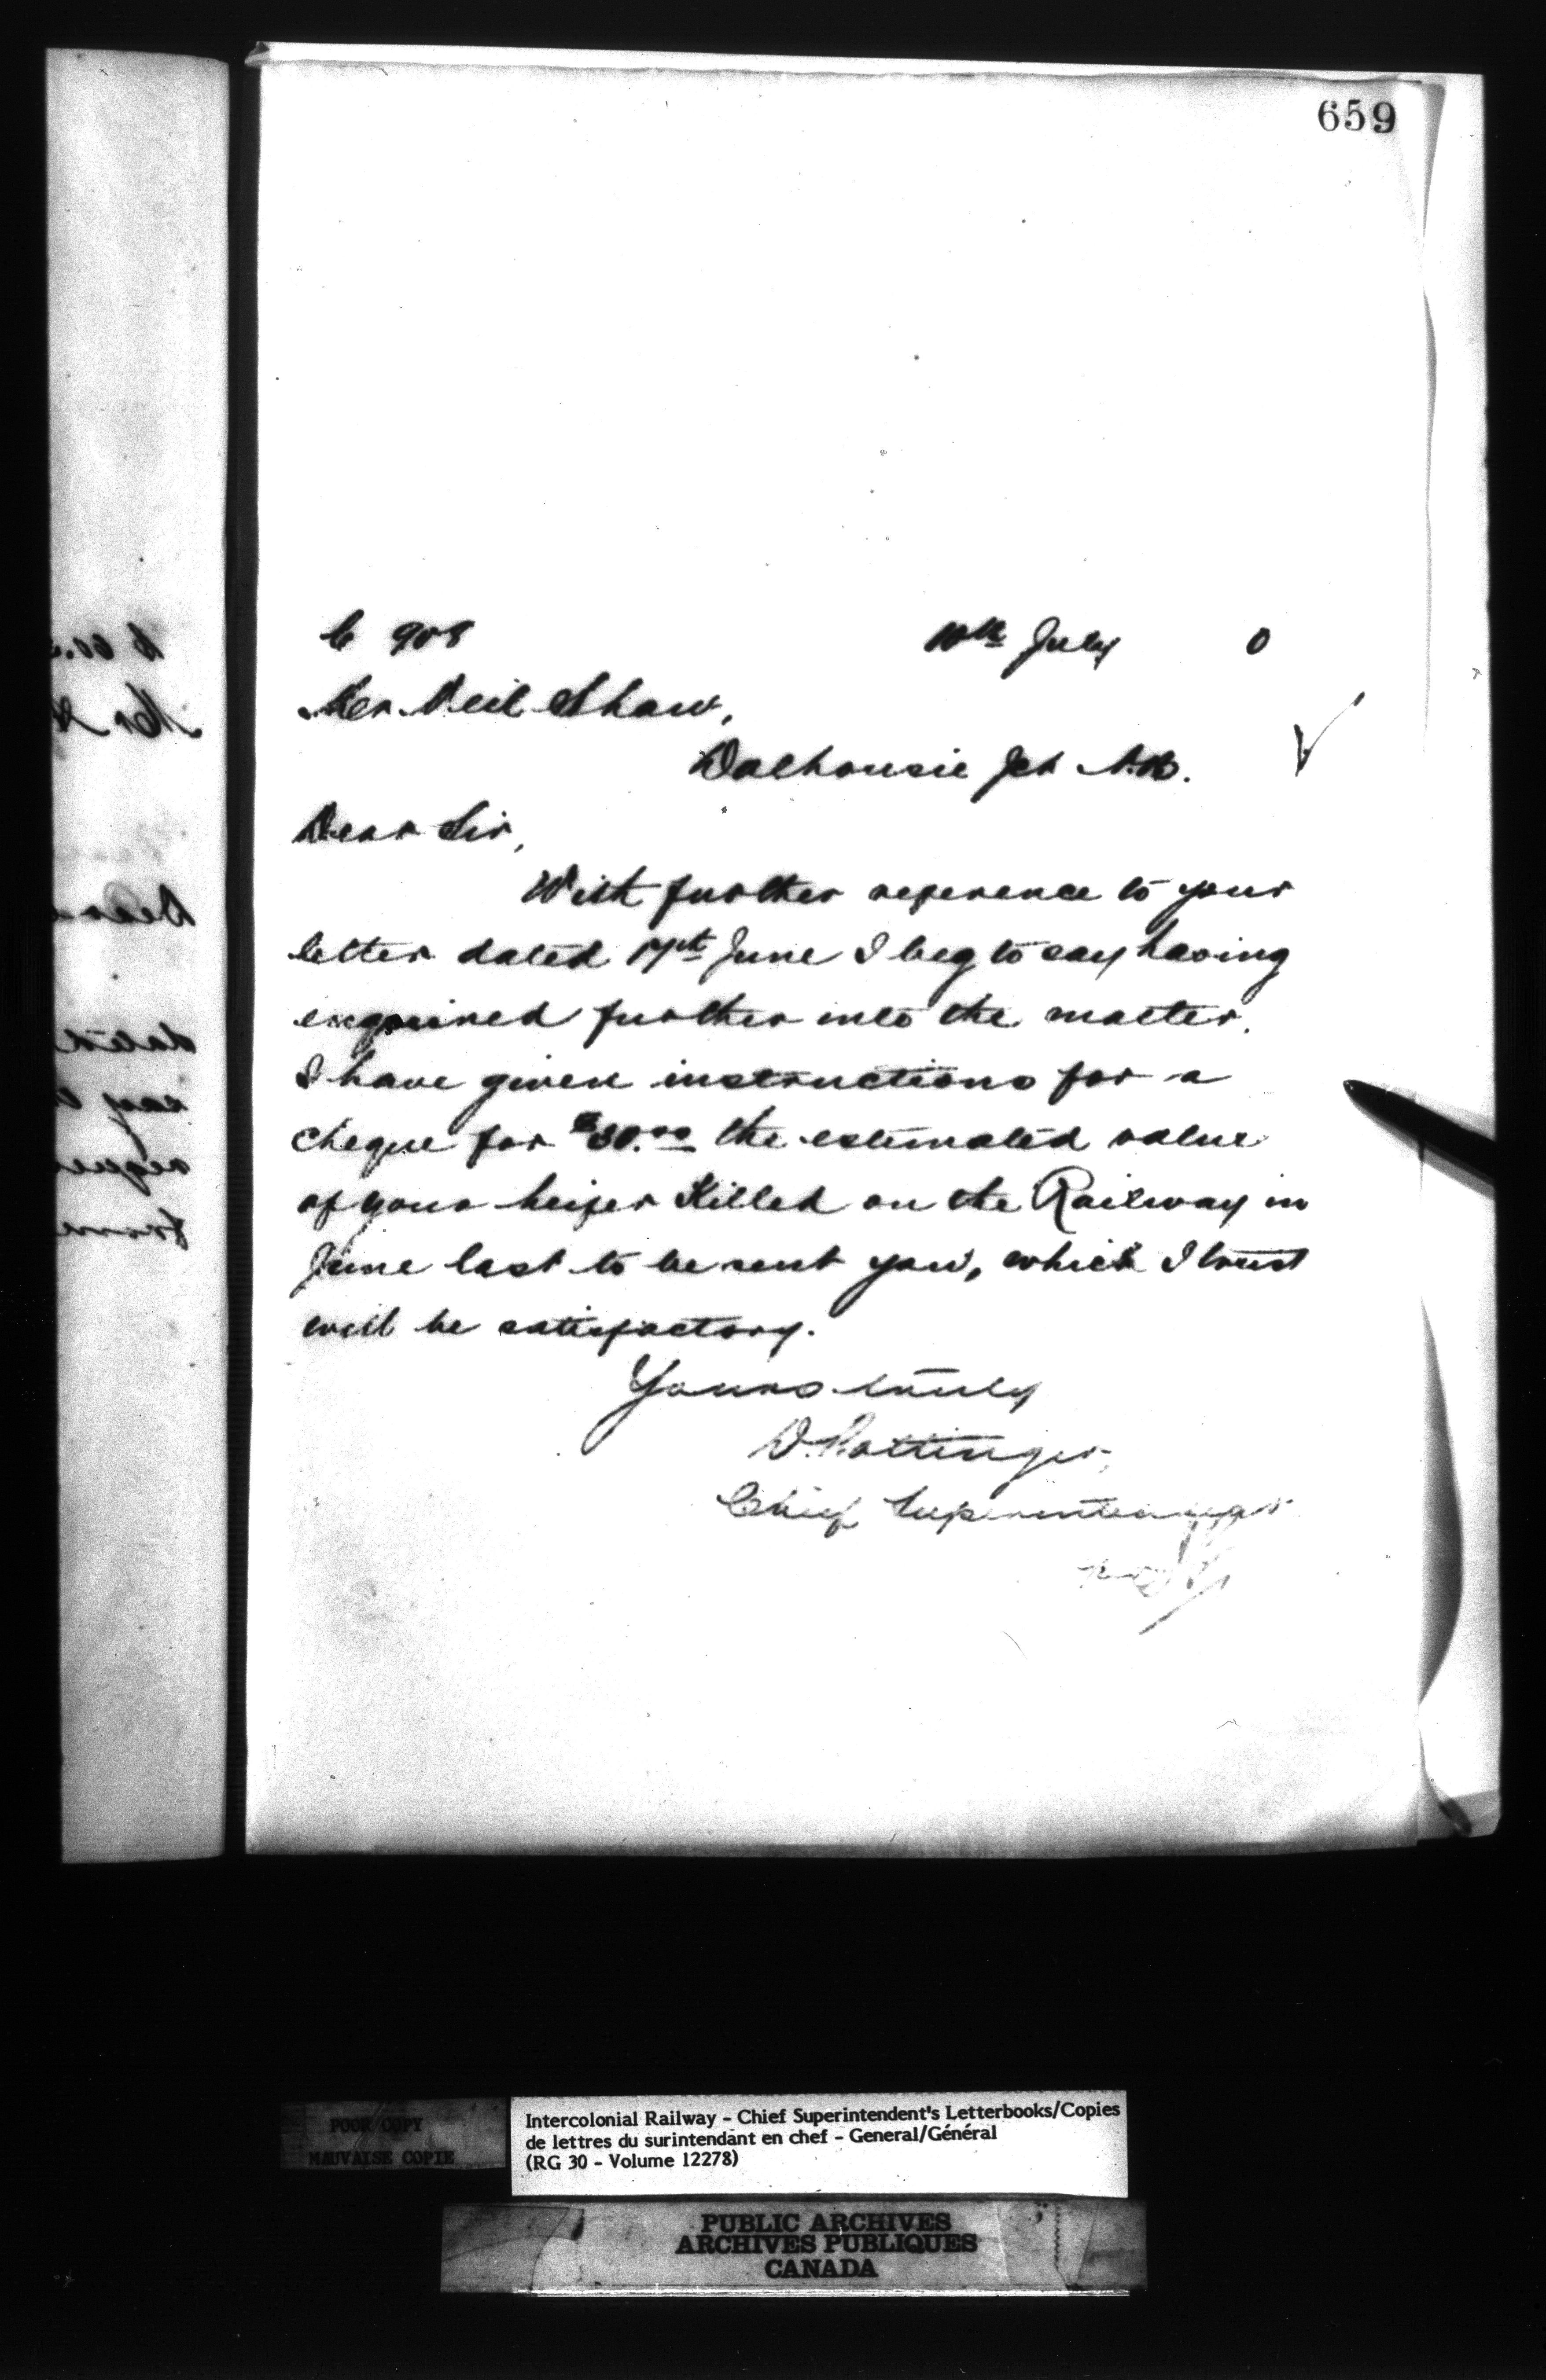 659
C 908 10th July 0
Mr. Neil Shaw,
Dalhousie Jct N.B.
Dear Sir,
With further reference to your
letter dated 17th June I beg to say having
enquired further into the matter.
I have given instructions for a
cheque for $30.00 the estimated value
of your heifer Killed on the Railway in
June last to be sent you, which I trust
will be satisfactory.
Yours truly
D. Pottinger,
Chief Superintendent
POOR COPY
MAUVAISE COPIE
Intercolonial Railway - Chief Superintendent's Letterbooks/Copies
de lettres du surintendant en chef - General/Général
(RG 30 - Volume 12278)
PUBLIC ARCHIVES
ARCHIVES PUBLIQUES
CANADA